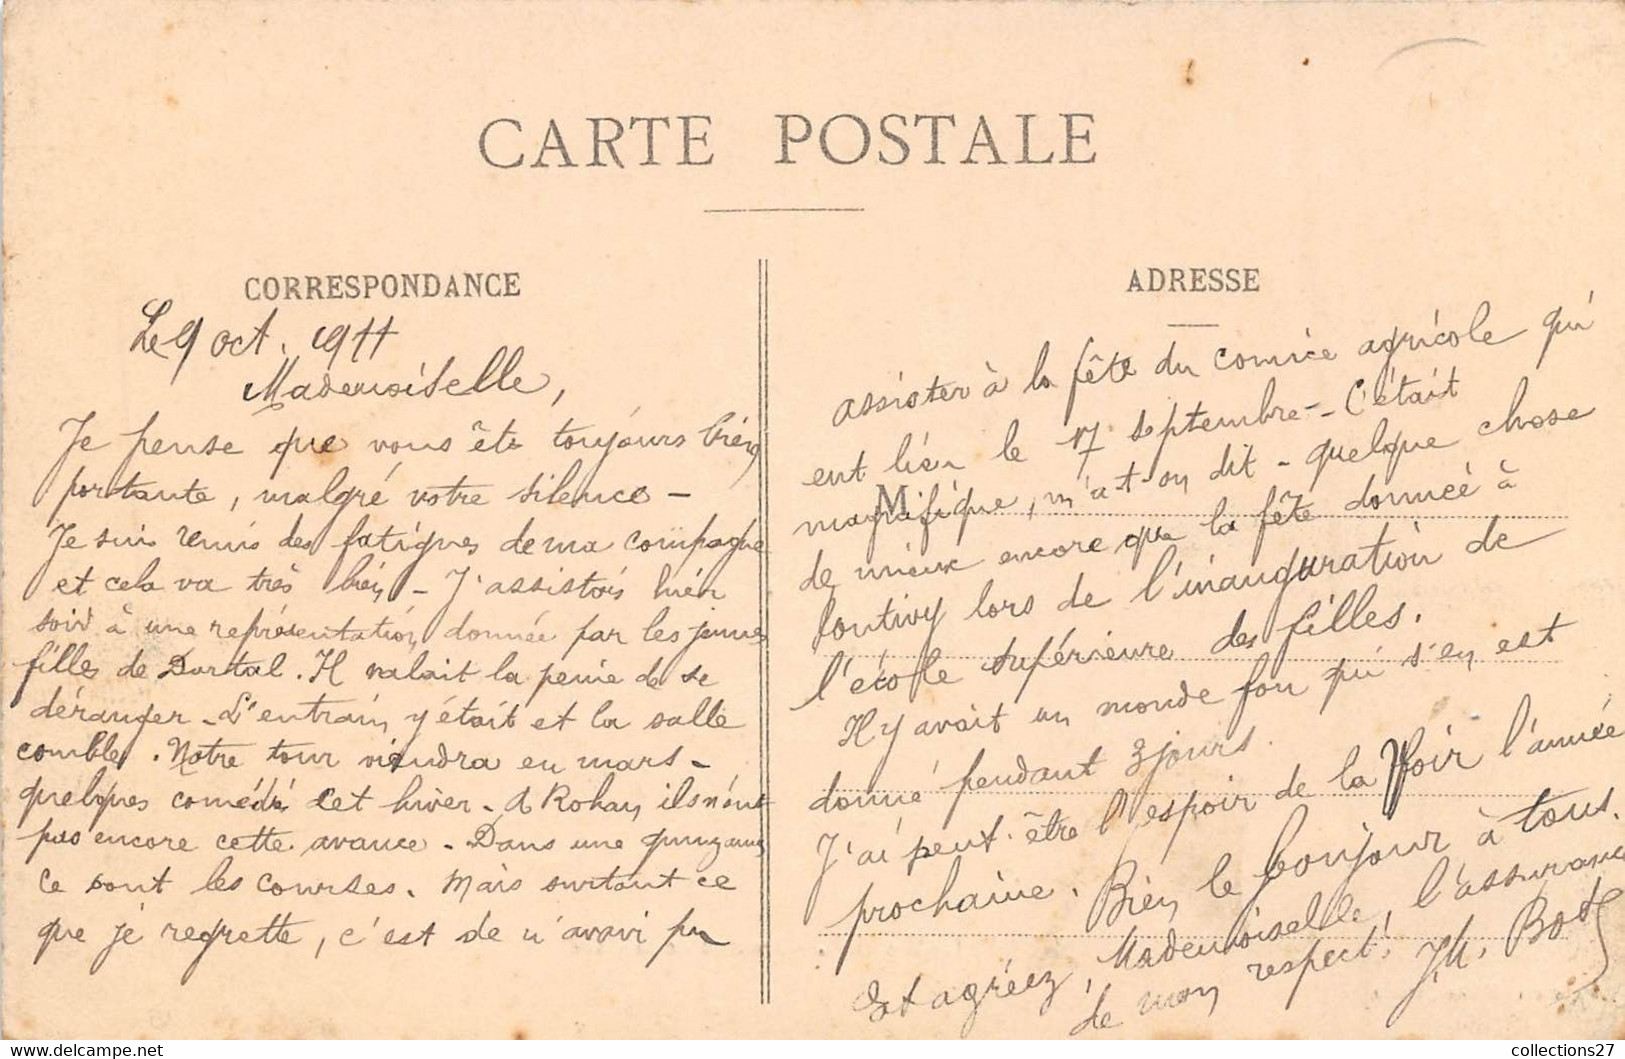 CARTE POSTALE
CORRESPONDANCE
Le 9 oct. 1911
Mademoiselle,
Je pense que vous êts toujours bien
portante, malgré votre silence -
Je suis remis des fatigues de ma
et cela va très bien - J'assistais hier
soir à une représentation, donnée par les jeunes
filles de . Il valait la peine de se
déranger - L'entrain y était et la salle
comble. Notre tour viendra en mars -
quelques comédies cet hiver - A Rohan, ils n'ont
pas encore cette avance - Dans une quinzaine
ce sont les courses. Mais surtout ce
que je regrette, c'est de n'avoir pu
ADRESSE
assister à la fête du comice agricole qui
eut lieu le 17 septembre - C'était
M
magnifique, m'a-t-on dit - quelque chose
de mieux encore que la fête donnée à
Pontivy lors de l'inauguration de
l'école supérieure des filles.
Il y avait un monde fou qui s'en est
donné pendant 3 jours.
J'ai peut-être l'espoir de la voir l'année
prochaine. Bien le bonjour à tous.
Et agréez, Mademoiselle, l'assurance
de mon respect! J.M.
collections27